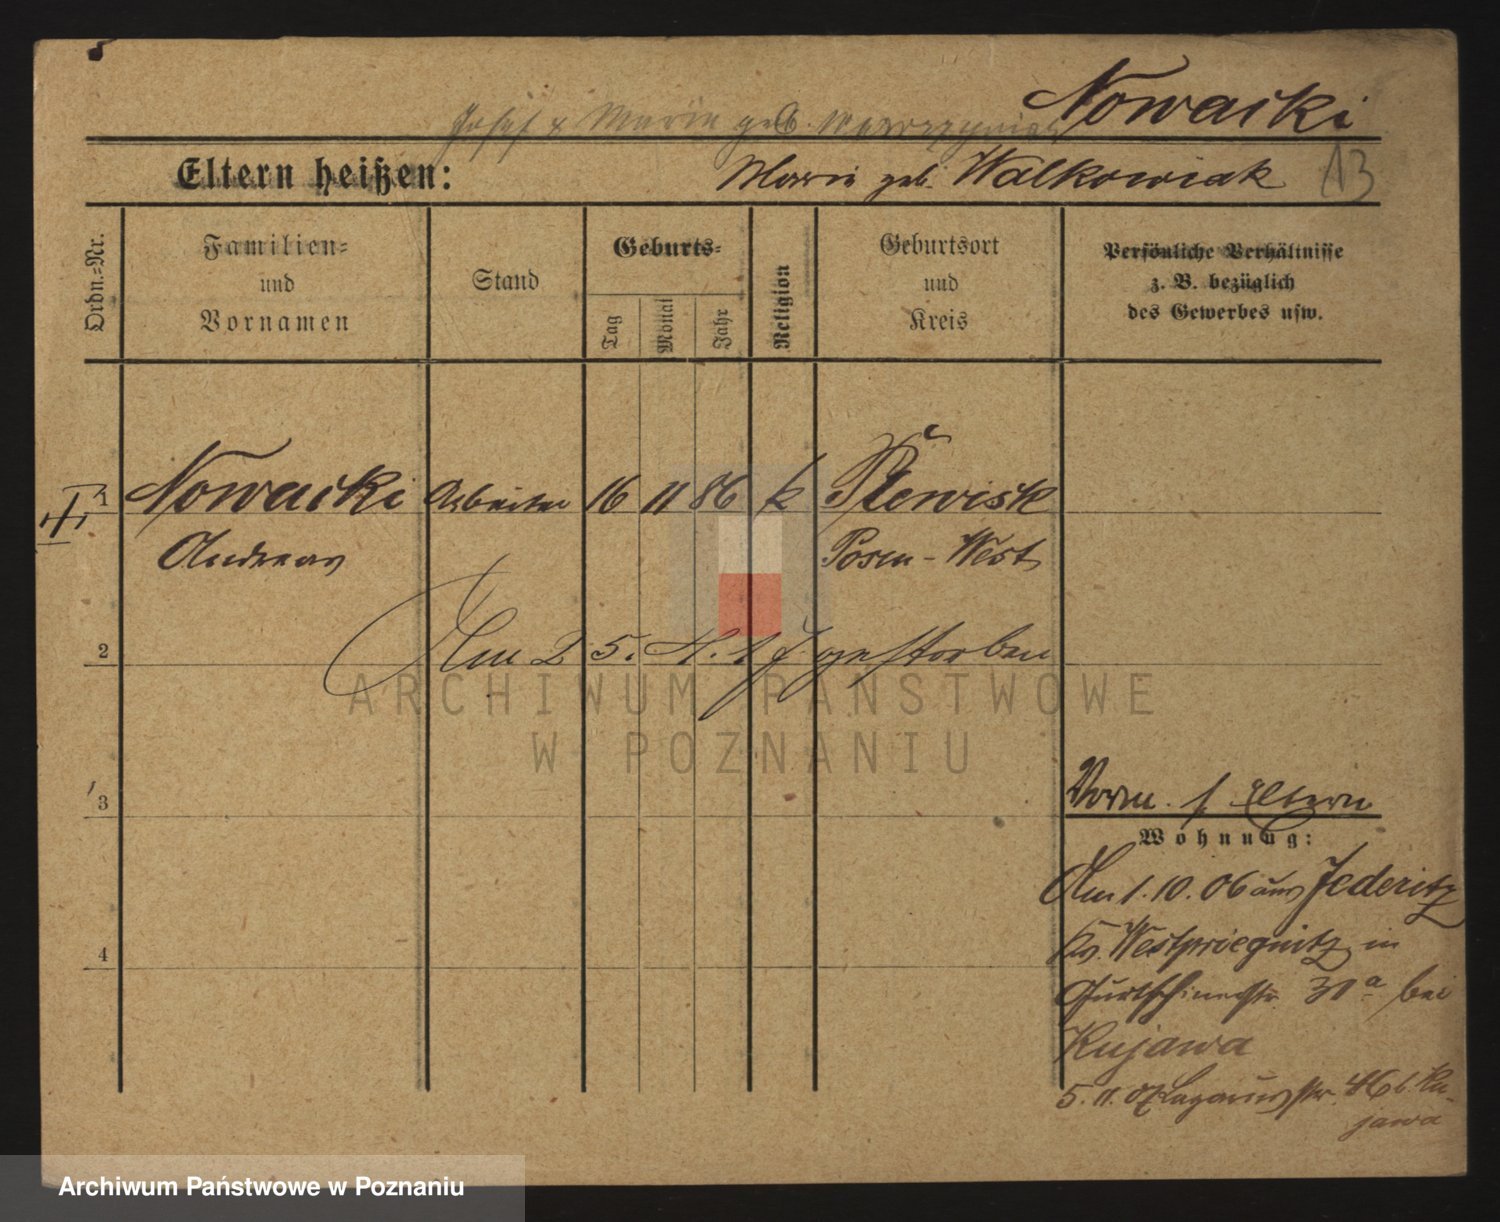 Nowacki
Josef & Marie geb.
Eltern heißen:
Marie geb. Walkowiak 13
Ordn.-Nr.
Familien-
und
Vornamen
Stand
Geburts-
Tag
Monat
Jahr
Religion
Geburtsort
und
Kreis
Persönliche Verhältnisse
z. B. bezüglich
des Gewerbes usw.
1 Nowacki Arbeiter 16 11 86 k Plewisk
Andreas Posen-West
2 Am 25. 11. gestorben
ARCHIWUM PAŃSTWOWE
W POZNANIU
3
Vorm. f. Eltern
Wohnung:
Am 1. 10. 06 aus Jederitz
Kr. Westpriegnitz in
Gurtschinerstr. 31a bei
4
Kujawa
5. 11. 07 Lazarusstr. 46 b. Ku-
jawa
Archiwum Państwowe w Poznaniu